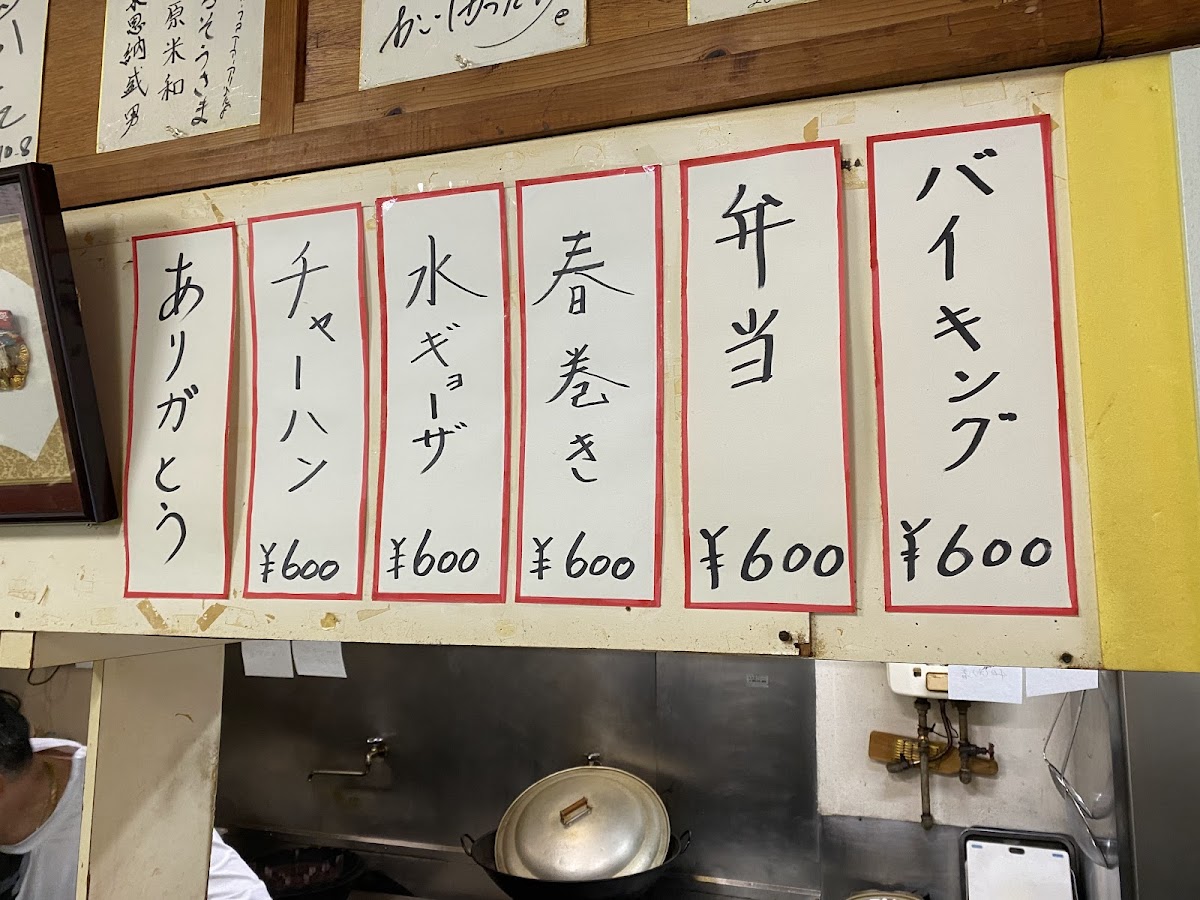 バイキング
¥600
弁当
¥600
春巻き
¥600
水ギョーザ
¥600
チャーハン
¥600
ありガとう
るそうさま
原米和
恩納盛男